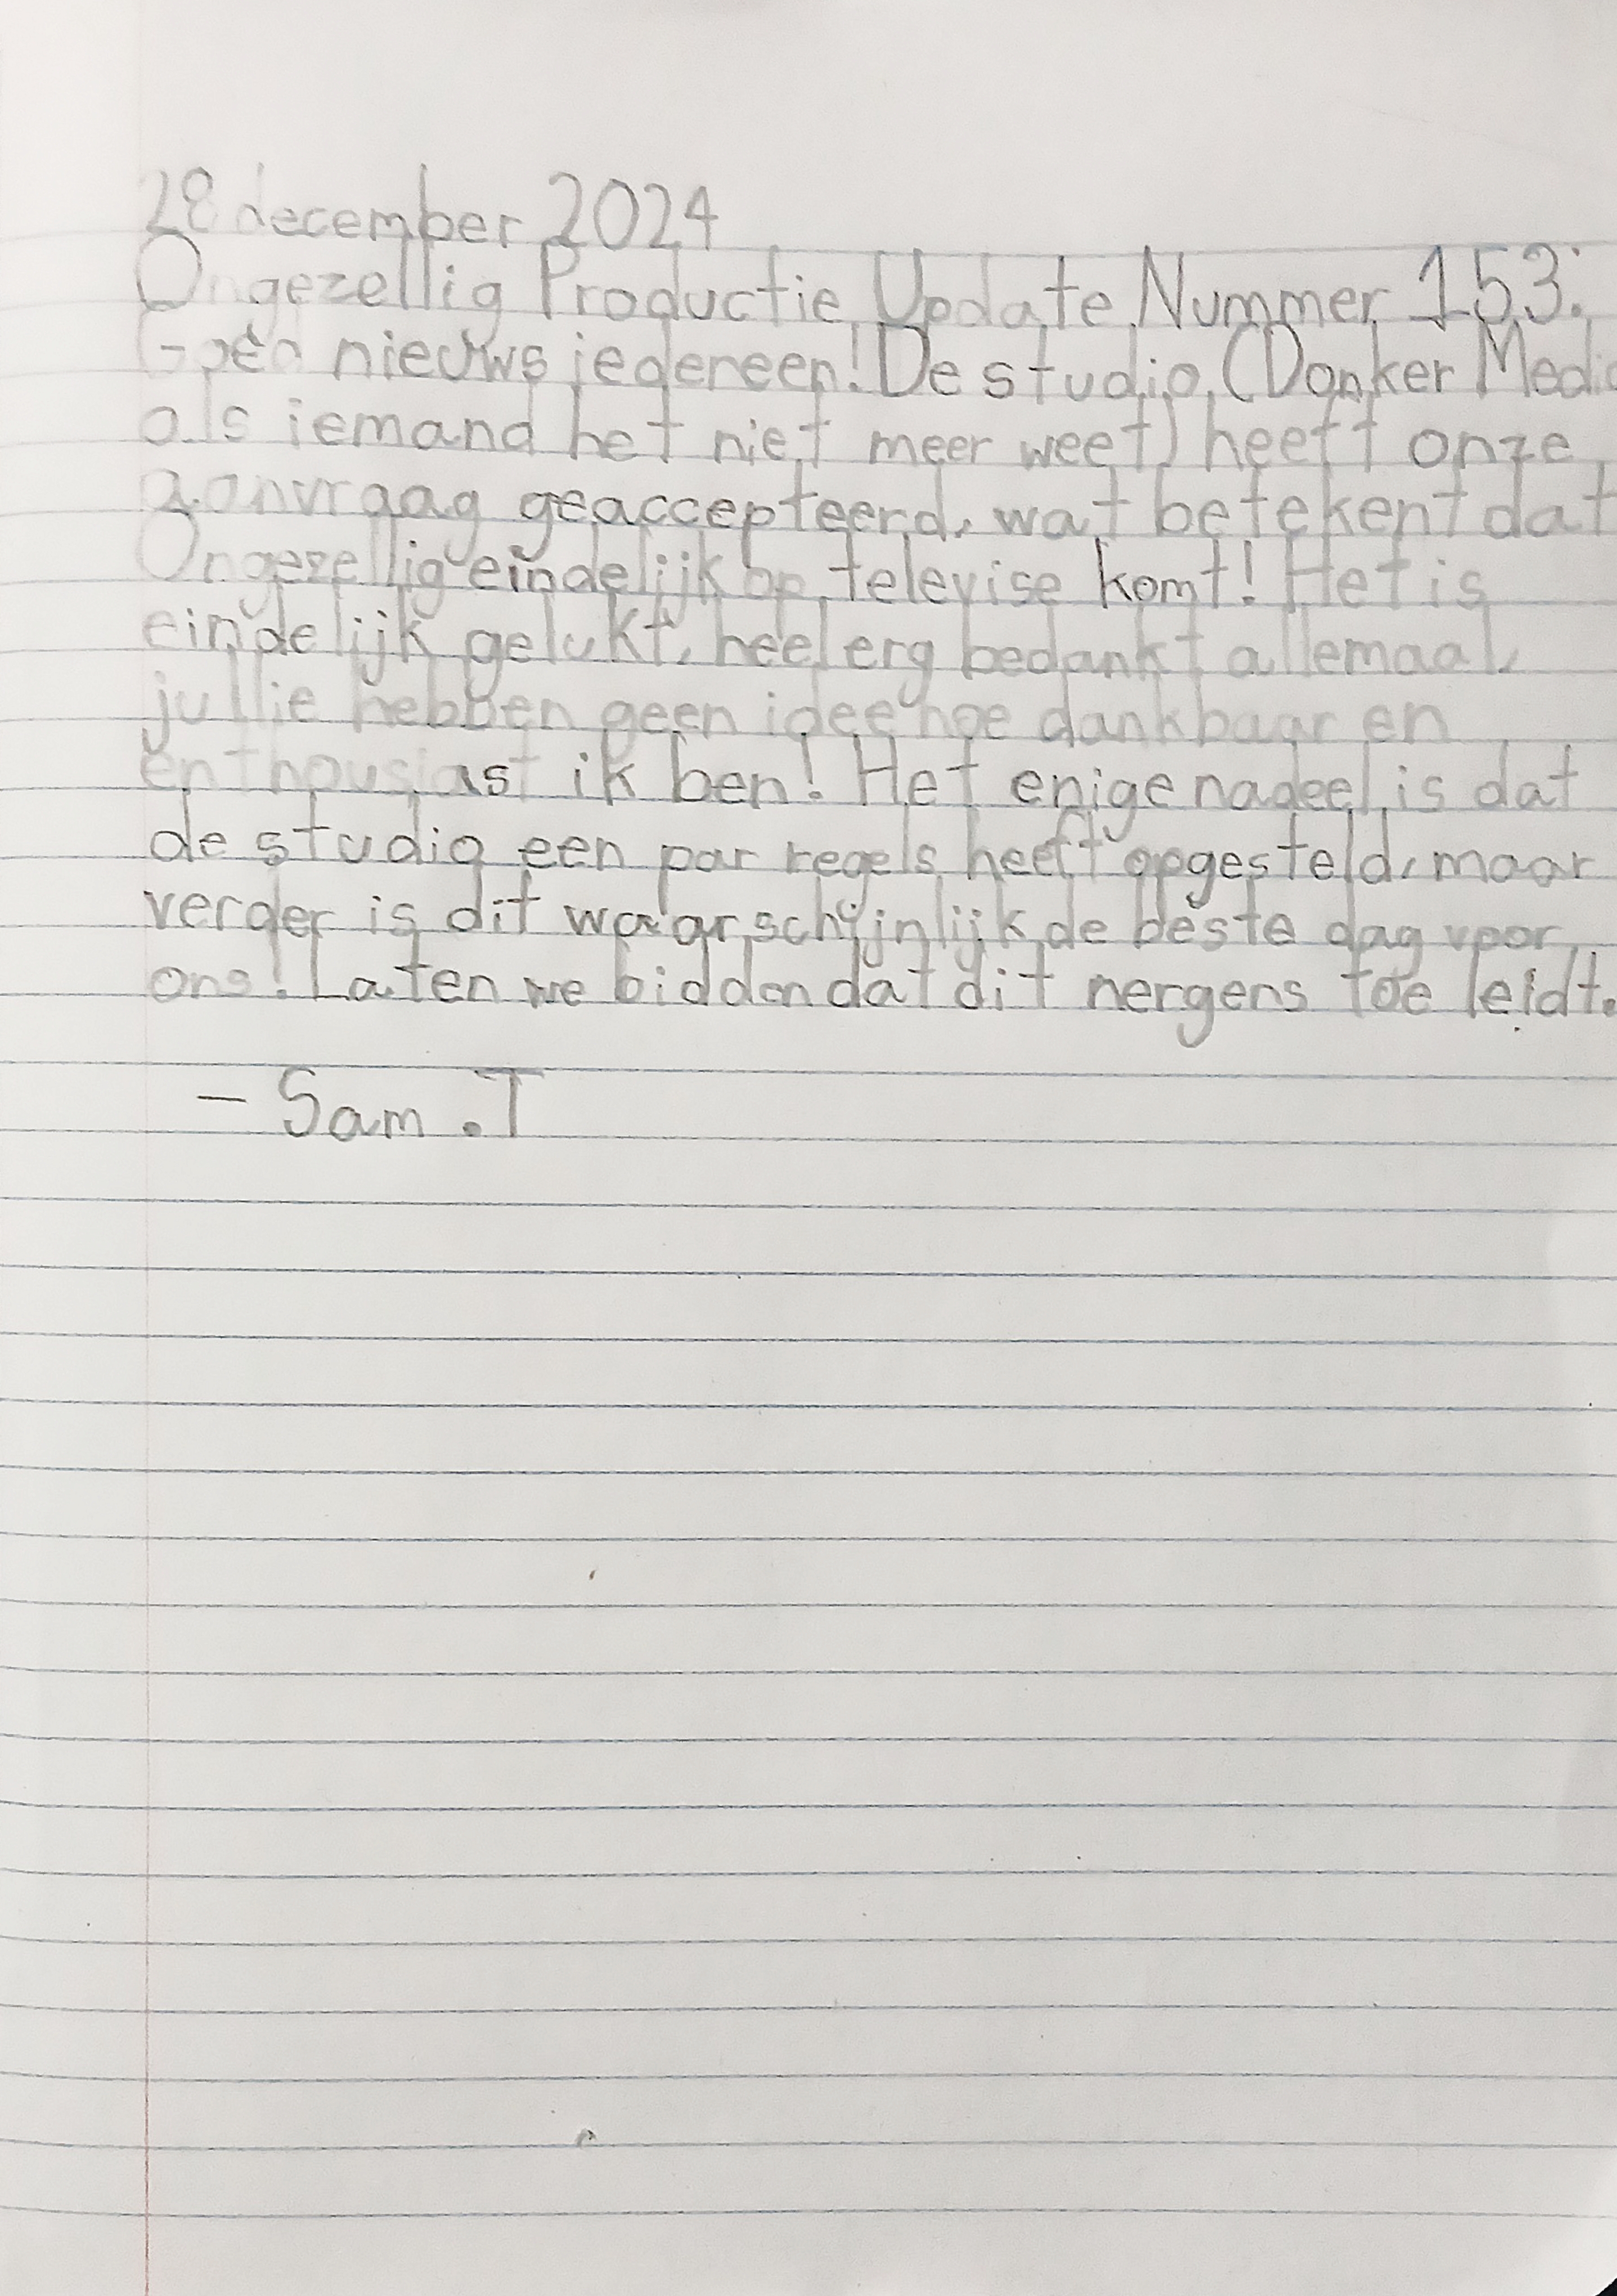 28 december 2024
Ongezellig Productie Update Nummer 153:
Goed nieuws iedereen! De studio (Donker Media
als iemand het niet meer weet) heeft onze
aanvraag geaccepteerd, wat betekent dat
Ongezellig eindelijk op televise komt! Het is
eindelijk gelukt, heel erg bedankt allemaal,
jullie hebben geen idee hoe dankbaar en
enthousiast ik ben! Het enige nadeel is dat
de studio een par regels heeft opgesteld, maar
verder is dit waarschijnlijk de beste dag voor
ons! Laten we bidden dat dit nergens toe leidt.
- Sam .T